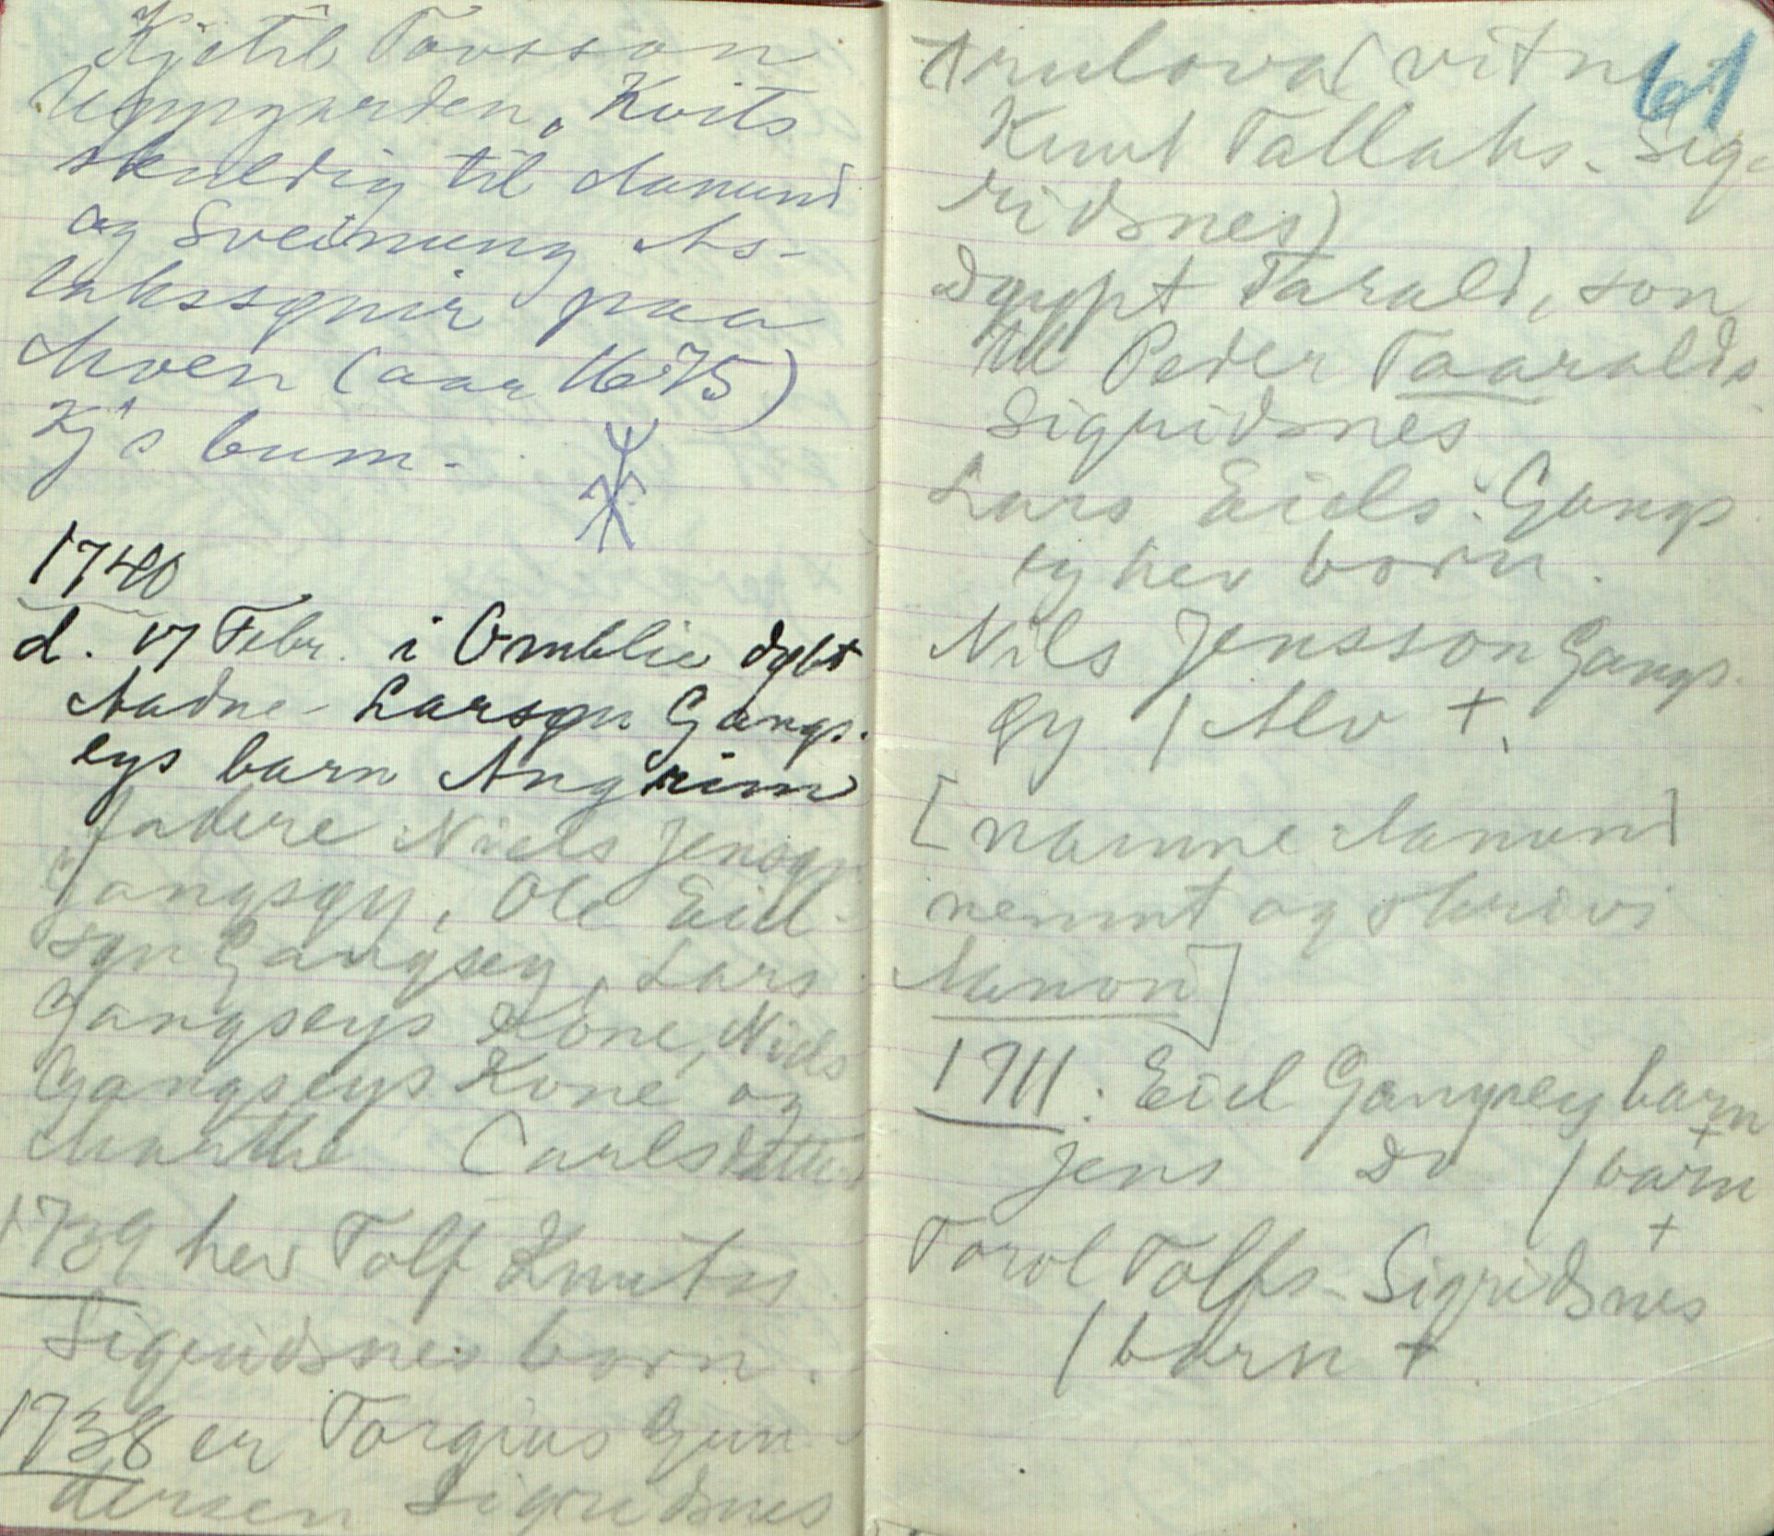 Kjetil Tovsson
Uppigarden, Kvits
skuldig til Aamund
og Sveinung As-
lakssynir paa
Moen (aar 1675)
Kj's bum.
1740
d. 17 Febr. i Omblie dybt
Aadne Larsøn Gangs-
eys barn Angrim
fadere Niels Jensøn
Gangsøy, Ole Eiel-
søn Gangsey, Lars
Gangseys Kone, Niels
Gangseys Kone og
Marthe Carlsdatter
1739 hev Tolf Knuts
Sigridsnes born.
1738 er Torgius Gun-
dersen Sigridsnes
61
trulova (vitne
Knut Tallaks. Sig-
ridsnes)
Døypt Tarald, son
til Peder Taaralds
Sigridsnes
Lars Eiels: Gangs
ey hev born.
Nils Jensson Gangs-
øy / Alv +.
[namne Aamund
nemnt og skrivi
Aamon]
1711: Eiel Gangsey barn +
Jens Do / barn +
Torol Tolfs. Sigridsnes
/ barn +